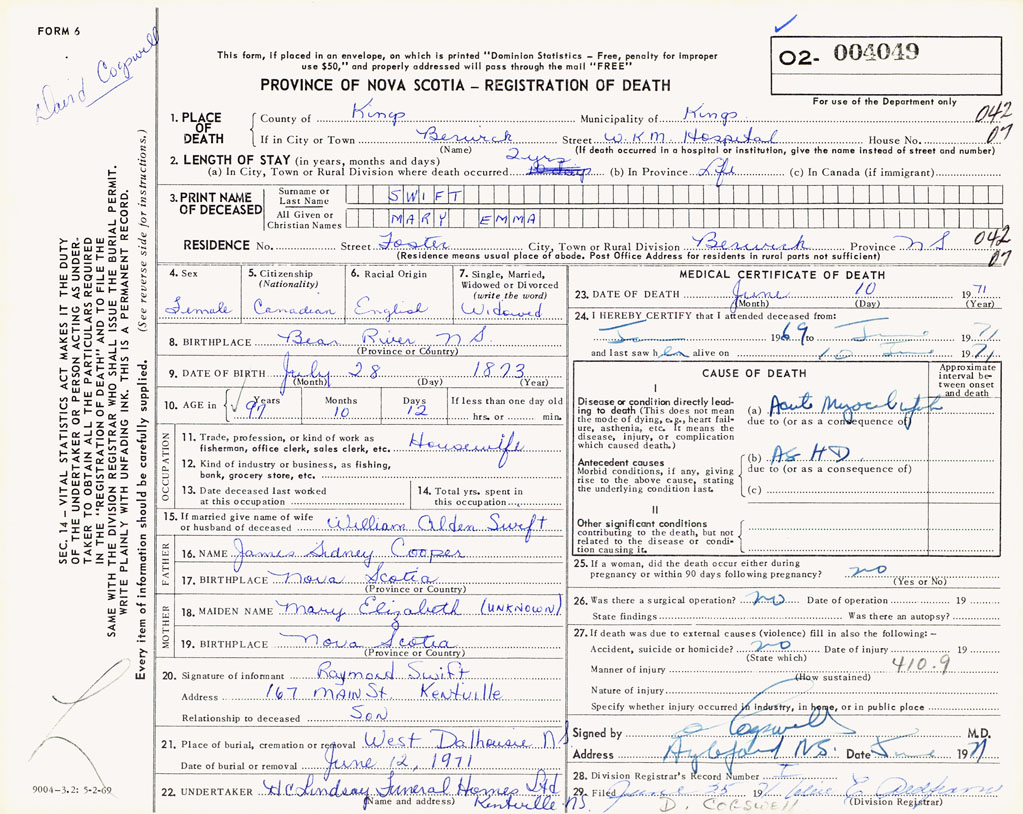 FORM 6
David Cogswell
This form, if placed in an envelope, on which is printed "Dominion Statistics – Free, penalty for improper
use $50," and properly addressed will pass through the mail "FREE"
PROVINCE OF NOVA SCOTIA – REGISTRATION OF DEATH
O2- 004049
For use of the Department only
SEC. 14 – VITAL STATISTICS ACT MAKES IT THE DUTY
OF THE UNDERTAKER OR PERSON ACTING AS UNDER-
TAKER TO OBTAIN ALL THE PARTICULARS REQUIRED
IN THE "REGISTRATION OF DEATH" AND TO FILE THE
SAME WITH THE DIVISION REGISTRAR WHO SHALL ISSUE THE BURIAL PERMIT.
WRITE PLAINLY WITH UNFADING INK. THIS IS A PERMANENT RECORD.
Every item of information should be carefully supplied. (See reverse side for instructions.)
1. PLACE OF DEATH
County of Kings Municipality of Kings 042
If in City or Town Berwick Street W.K.M. Hospital House No. 07
(Name) (If death occurred in a hospital or institution, give the name instead of street and number)
2. LENGTH OF STAY (in years, months and days) 2 yrs
(a) In City, Town or Rural Division where death occurred (b) In Province Life (c) In Canada (if immigrant)
3. PRINT NAME OF DECEASED
Surname or Last Name SWIFT
All Given or Christian Names MARY EMMA
RESIDENCE No. Street Foster City, Town or Rural Division Berwick Province NS 042
(Residence means usual place of abode. Post Office Address for residents in rural parts not sufficient) 07
4. Sex Female
5. Citizenship (Nationality) Canadian
6. Racial Origin English
7. Single, Married, Widowed or Divorced (write the word) Widowed
8. BIRTHPLACE Bear River N S.
(Province or Country)
9. DATE OF BIRTH July 28 1873
(Month) (Day) (Year)
10. AGE in Years 97 Months 10 Days 12 If less than one day old
hrs. or min.
OCCUPATION
11. Trade, profession, or kind of work as
fisherman, office clerk, sales clerk, etc. Housewife
12. Kind of industry or business, as fishing,
bank, grocery store, etc.
13. Date deceased last worked
at this occupation
14. Total yrs. spent in
this occupation
15. If married give name of wife
or husband of deceased William Alden Swift
FATHER
16. NAME James Sidney Cooper
17. BIRTHPLACE Nova Scotia
(Province or Country)
MOTHER
18. MAIDEN NAME Mary Elizabeth (UNKNOWN)
19. BIRTHPLACE Nova Scotia
(Province or Country)
20. Signature of informant Raymond Swift
Address 167 MAIN St. Kentville
Relationship to deceased Son
21. Place of burial, cremation or removal West Dalhousie NS
Date of burial or removal June 12, 1971
22. UNDERTAKER H C Lindsay Funeral Homes Ltd
(Name and address) Kentville NS.
9004-3.2: 5-2-69
MEDICAL CERTIFICATE OF DEATH
23. DATE OF DEATH June 10 1971
(Month) (Day) (Year)
24. I HEREBY CERTIFY that I attended deceased from:
1969 to June 1971
and last saw her alive on 10 June 1971
CAUSE OF DEATH
Approximate interval between onset and death
I
Disease or condition directly lead-
ing to death (This does not mean
the mode of dying, e.g., heart fail-
ure, asthenia, etc. It means the
disease, injury, or complication
which caused death.)
(a) Acute
due to (or as a consequence of)
Antecedent causes
Morbid conditions, if any, giving
rise to the above cause, stating
the underlying condition last.
(b) AS HD
due to (or as a consequence of)
(c)
II
Other significant conditions
contributing to the death, but not
related to the disease or condi-
tion causing it.
25. If a woman, did the death occur either during
pregnancy or within 90 days following pregnancy? no
(Yes or No)
26. Was there a surgical operation? no Date of operation 19
State findings Was there an autopsy?
27. If death was due to external causes (violence) fill in also the following: –
Accident, suicide or homicide? no Date of injury 19
(State which) 410.9
Manner of injury
(How sustained)
Nature of injury
Specify whether injury occurred in industry, in home, or in public place
Signed by D Cogswell M.D.
Address Aylesford NS. Date June 1971
28. Division Registrar's Record Number
29. Filed June 25 1971
D. COGSWELL (Division Registrar)